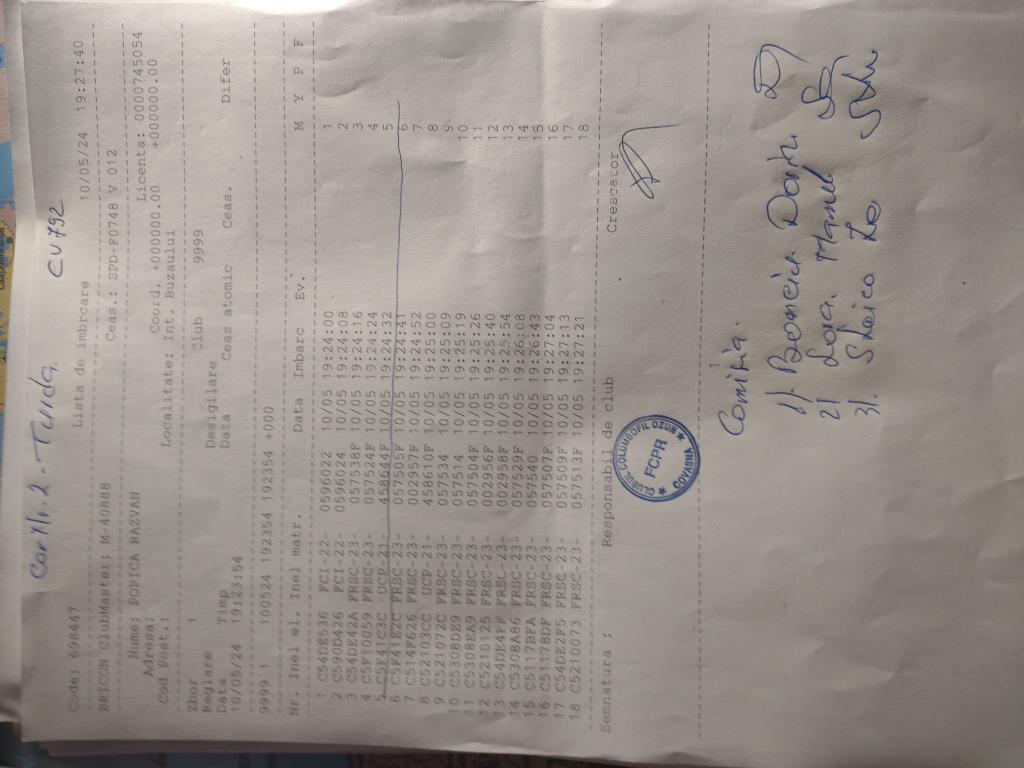 CU 792
Code: 698447 Lista de imbrcare 10/05/24 19:27:40
BRICON ClubMaster: M-40888 Ceas.: SPD-F0748 V 012
Nume: POPICA RAZVAN Licenta: 0000745054
Adresa: Coord. +000000.00 +000000:00
Cod Post.: Localitate: Int. Buzaului
Zbor 1 Club 9999
Reglare Desigilare
Data Timp Data Ceas atomic Ceas. Difer
10/05/24 19:23:54
9999 1 100524 192354 192354 +000
Nr. Inel el. Inel matr. Data Imbarc Ev. M Y P F
1 C54DE536 FCI-22- 0596022 10/05 19:24:00 1
2 C590D426 FCI-22- 0596024 10/05 19:24:08 2
3 C54DE42A FRSC-23- 057538F 10/05 19:24:16 3
4 C5F10059 FRSC-23- 057524F 10/05 19:24:24 4
5 C5F41C3C UCP-21- 458644F 10/05 19:24:32 5
6 C5F41E2C FRSC-23- 057505F 10/05 19:24:41 6
7 C514F626 FRSC-23- 002957F 10/05 19:24:52 7
8 C52103CC UCP-21- 458610F 10/05 19:25:00 8
9 C521072C FRSC-23- 057534 10/05 19:25:09 9
10 C5308DE9 FRSC-23- 057514 10/05 19:25:19 10
11 C5308EA9 FRSC-23- 057504F 10/05 19:25:26 11
12 C5210125 FRSC-23- 002956F 10/05 19:25:40 12
13 C54DE4FF FRSC-23- 002958F 10/05 19:25:54 13
14 C5308A86 FRSC-23- 057529F 10/05 19:26:08 14
15 C5117BFA FRSC-23- 057540 10/05 19:26:43 15
16 C51178DF FRSC-23- 057507F 10/05 19:27:04 16
17 C54DE2F5 FRSC-23- 057509F 10/05 19:27:13 17
18 C5210073 FRSC-23- 057513F 10/05 19:27:21 18
Semnatura : Responsabil de club Crescator
CLUBUL COLUMBOFIL OZUN
FCPR
COVASNA
Comisia.
1).
2)
3).